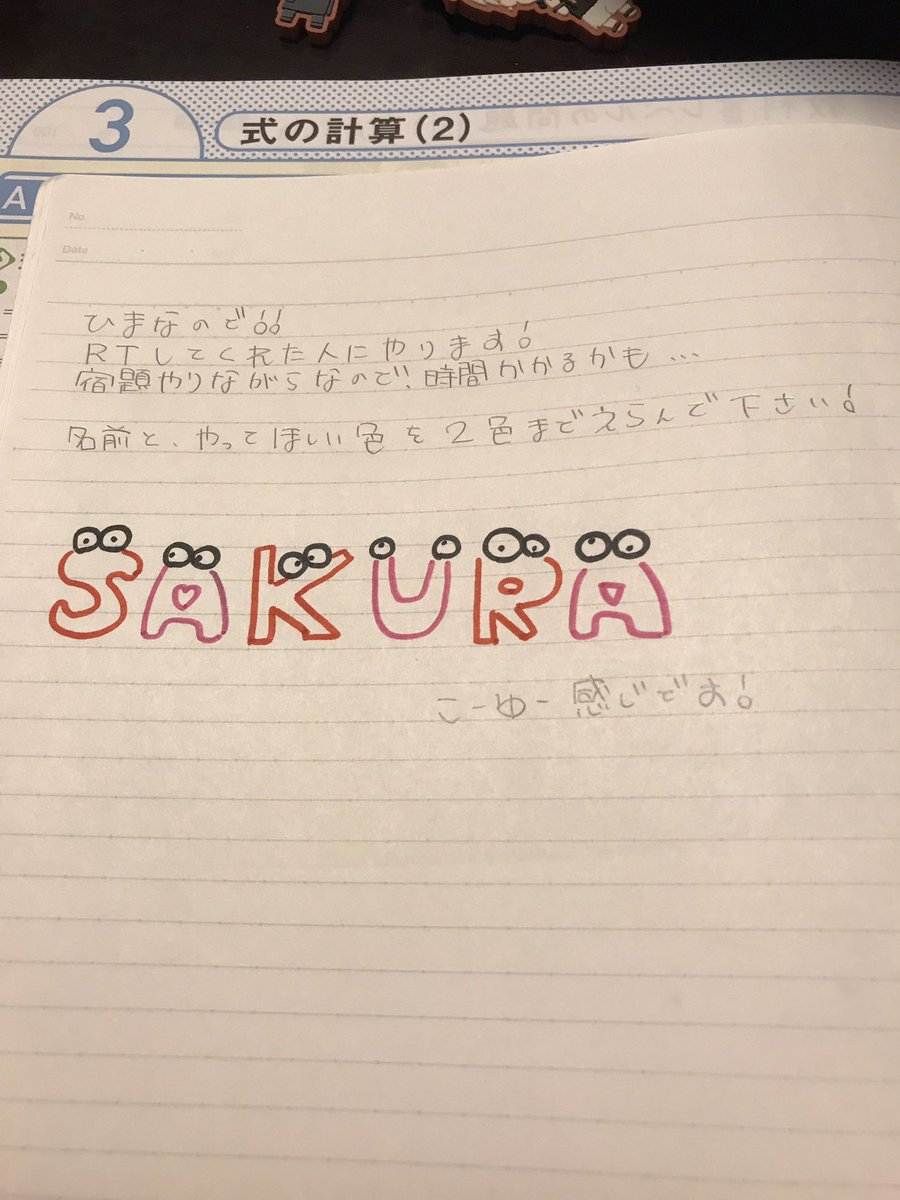 3
式の計算(2)
A
No.
Date
ひまなので!!
RTしてくれた人にやります!
宿題やりながらなので!時間かかるかも...
名前と、やってほしい色を2色までえらんで下さい!
SAKURA
こーゆー感じでお!